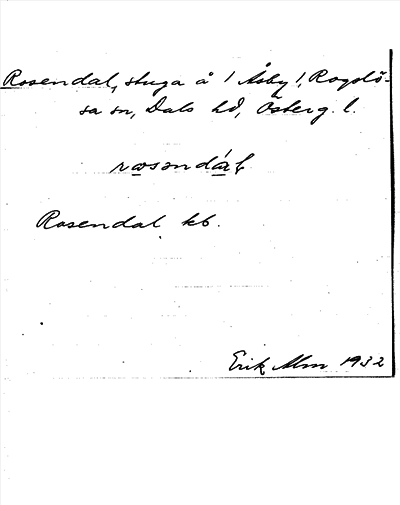 Rosendal, stuga å 1 Åsby 1, Rogslö-
sa sn, Dals hd, Österg. l.
Rosendal kb.
Erik Alm 1932